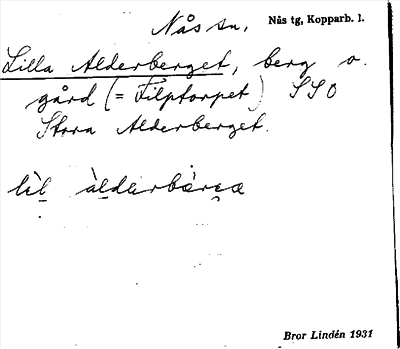 Nås sn. Nås tg, Kopparb. l.
Lilla Alderberget, berg o.
gård (= Filptorpet) SSO
Stora Alderberget.
lìl àlderbærɛæ
Bror Lindén 1931